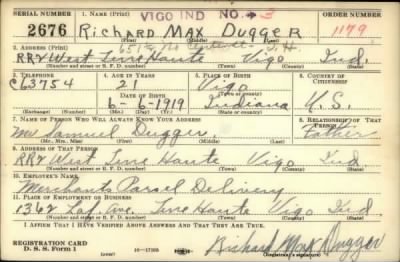 VIGO IND NO. → 3
SERIAL NUMBER
1. NAME (Print)
ORDER NUMBER
2676
RICHARD MAX DUGGER
1179
2. ADDRESS (Print)
651 No T. H.
RR2 West Terre Haute Vigo Ind.
(Number and street or R. F. D. number) (Town) (County) (State)
3. TELEPHONE
4. AGE IN YEARS
5. PLACE OF BIRTH
6. COUNTRY OF CITIZENSHIP
C63754
21
Vigo
DATE OF BIRTH
6-6-1919
Indiana
U.S.
(Exchange) (Number)
(Mo.) (Day) (Yr.)
(State or country)
7. NAME OF PERSON WHO WILL ALWAYS KNOW YOUR ADDRESS
8. RELATIONSHIP OF THAT PERSON
Mr Samuel Dugger.
Father
(Mr., Mrs., Miss) (First) (Middle) (Last)
9. ADDRESS OF THAT PERSON
RR2 West Terre Haute Vigo Ind
(Number and street or R. F. D. number) (Town) (County) (State)
10. EMPLOYER'S NAME
Merchants Parcel Delivery
11. PLACE OF EMPLOYMENT OR BUSINESS
1362 Laf. Ave. Terre Haute Vigo Ind
(Number and street or R. F. D. number) (Town) (County) (State)
I AFFIRM THAT I HAVE VERIFIED ABOVE ANSWERS AND THAT THEY ARE TRUE.
REGISTRATION CARD
D. S. S. Form 1
(over)
Richard Max Dugger
(Registrant's signature)